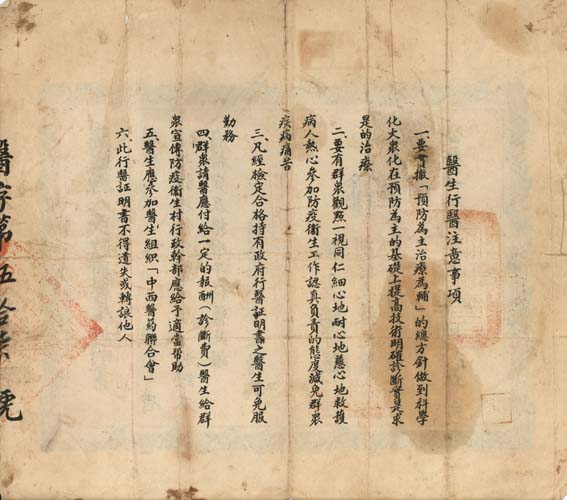 醫生行醫注意事項
一、要貫撤「預防為主治療為輔」的總方針做到科學
化大衆化在預防為主的基礎上提高技術明確診斷實是求
是的治療
二、要有群衆觀點一視同仁細心地耐心地慈心地救護
病人熱心參加防疫衛生工作認真負責的態度減免群衆
疾病痛苦
三、凡經檢定合格持有政府行醫証明書之醫生可免服
勤務
四、群衆請醫應付給一定的報酬(診斷費)醫生給群
衆宣傳防疫衛生村行政幹部應給予適當幫助
五、醫生應參加醫生組織「中西醫葯聯合會」
六、此行醫証明書不得遺失或轉讓他人
醫字第伍拾柒號